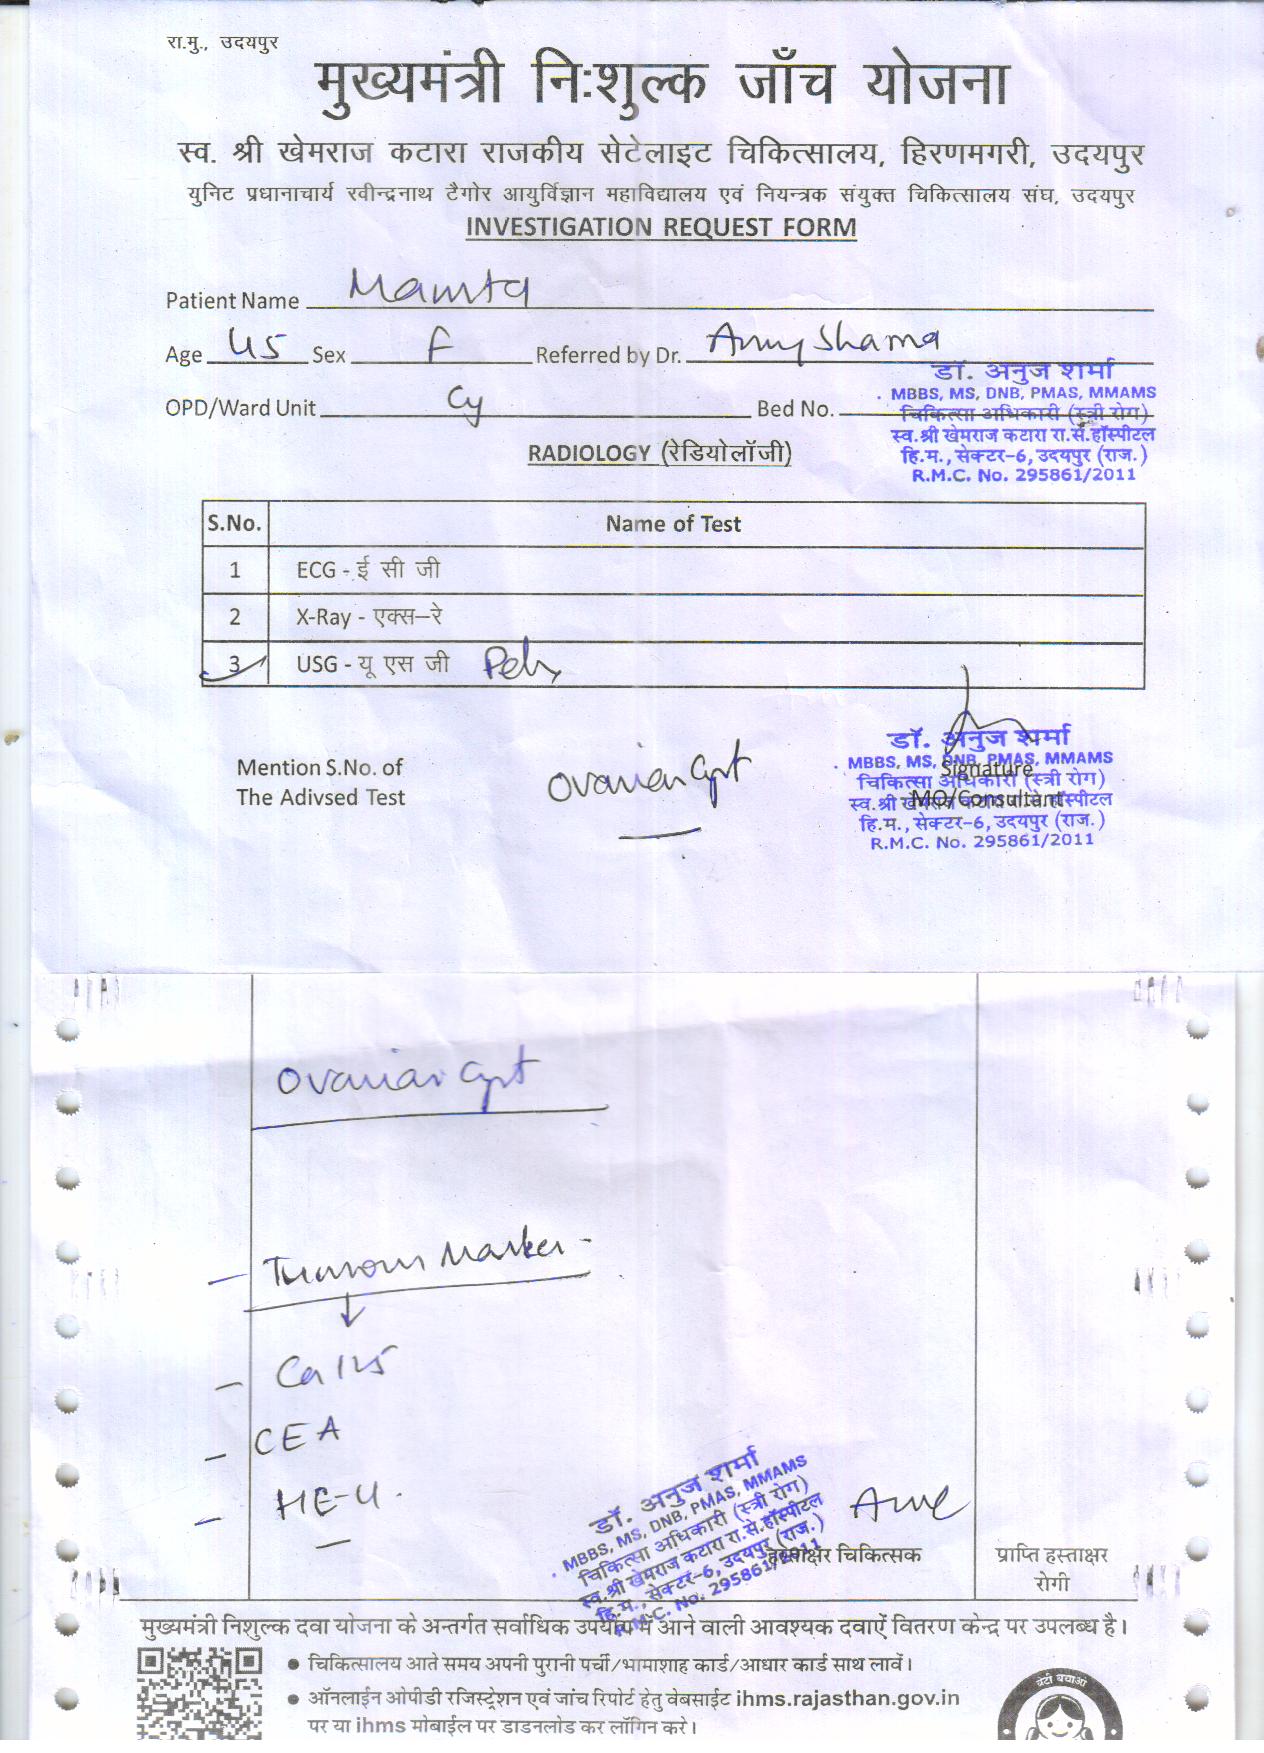 रा.मु., उदयपुर
मुख्यमंत्री निःशुल्क जाँच योजना
स्व. श्री खेमराज कटारा राजकीय सेटेलाइट चिकित्सालय, हिरणमगरी, उदयपुर
युनिट प्रधानाचार्य रवीन्द्रनाथ टैगोर आयुर्विज्ञान महाविद्यालय एवं नियन्त्रक संयुक्त चिकित्सालय संघ, उदयपुर
INVESTIGATION REQUEST FORM
Patient Name Mamta
Age 45 Sex F Referred by Dr. Anuj Sharma
डॉ. अनुज शर्मा
MBBS, MS, DNB, PMAS, MMAMS
OPD/Ward Unit Bed No.
चिकित्सा अधिकारी (स्त्री रोग)
स्व.श्री खेमराज कटारा रा.से.हॉस्पीटल
हि.म., सेक्टर-6, उदयपुर (राज.)
R.M.C. No. 295861/2011
RADIOLOGY (रेडियोलॉजी)
S.No. Name of Test
1 ECG - ई सी जी
2 X-Ray - एक्स-रे
3 USG - यू एस जी
Mention S.No. of
The Adivsed Test
Ovarian Cyst
डॉ. अनुज शर्मा
MBBS, MS, DNB, PMAS, MMAMS
Signature
चिकित्सा अधिकारी (स्त्री रोग)
MO/Consultant
स्व.श्री खेमराज कटारा रा.से.हॉस्पीटल
हि.म., सेक्टर-6, उदयपुर (राज.)
R.M.C. No. 295861/2011
Ovarian Cyst
- Tumour Marker -
- Ca 125
- CEA
- HE-4.
डॉ. अनुज शर्मा
MBBS, MS, DNB, PMAS, MMAMS
चिकित्सा अधिकारी (स्त्री रोग)
स्व.श्री खेमराज कटारा रा.से.हॉस्पीटल
हि.म., सेक्टर-6, उदयपुर (राज.)
R.M.C. No. 295861/2011
हस्ताक्षर चिकित्सक
प्राप्ति हस्ताक्षर
रोगी
मुख्यमंत्री निशुल्क दवा योजना के अन्तर्गत सर्वाधिक उपयोग में आने वाली आवश्यक दवाऐं वितरण केन्द्र पर उपलब्ध है।
● चिकित्सालय आते समय अपनी पुरानी पर्ची/भामाशाह कार्ड/आधार कार्ड साथ लावें।
● ऑनलाईन ओपीडी रजिस्ट्रेशन एवं जांच रिपोर्ट हेतु वेबसाईट ihms.rajasthan.gov.in
पर या ihms मोबाईल पर डाडनलोड कर लॉगिन करे।
बेटी बचाओ